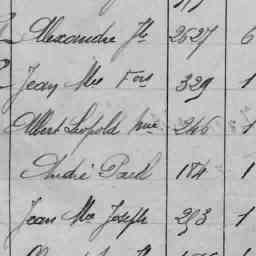 Alexandre Jh 2527 6
Jean Mie Fois 329 1
Albert Léopold 246 1
André Paul 184 1
Jean Mie Joseph 293 1